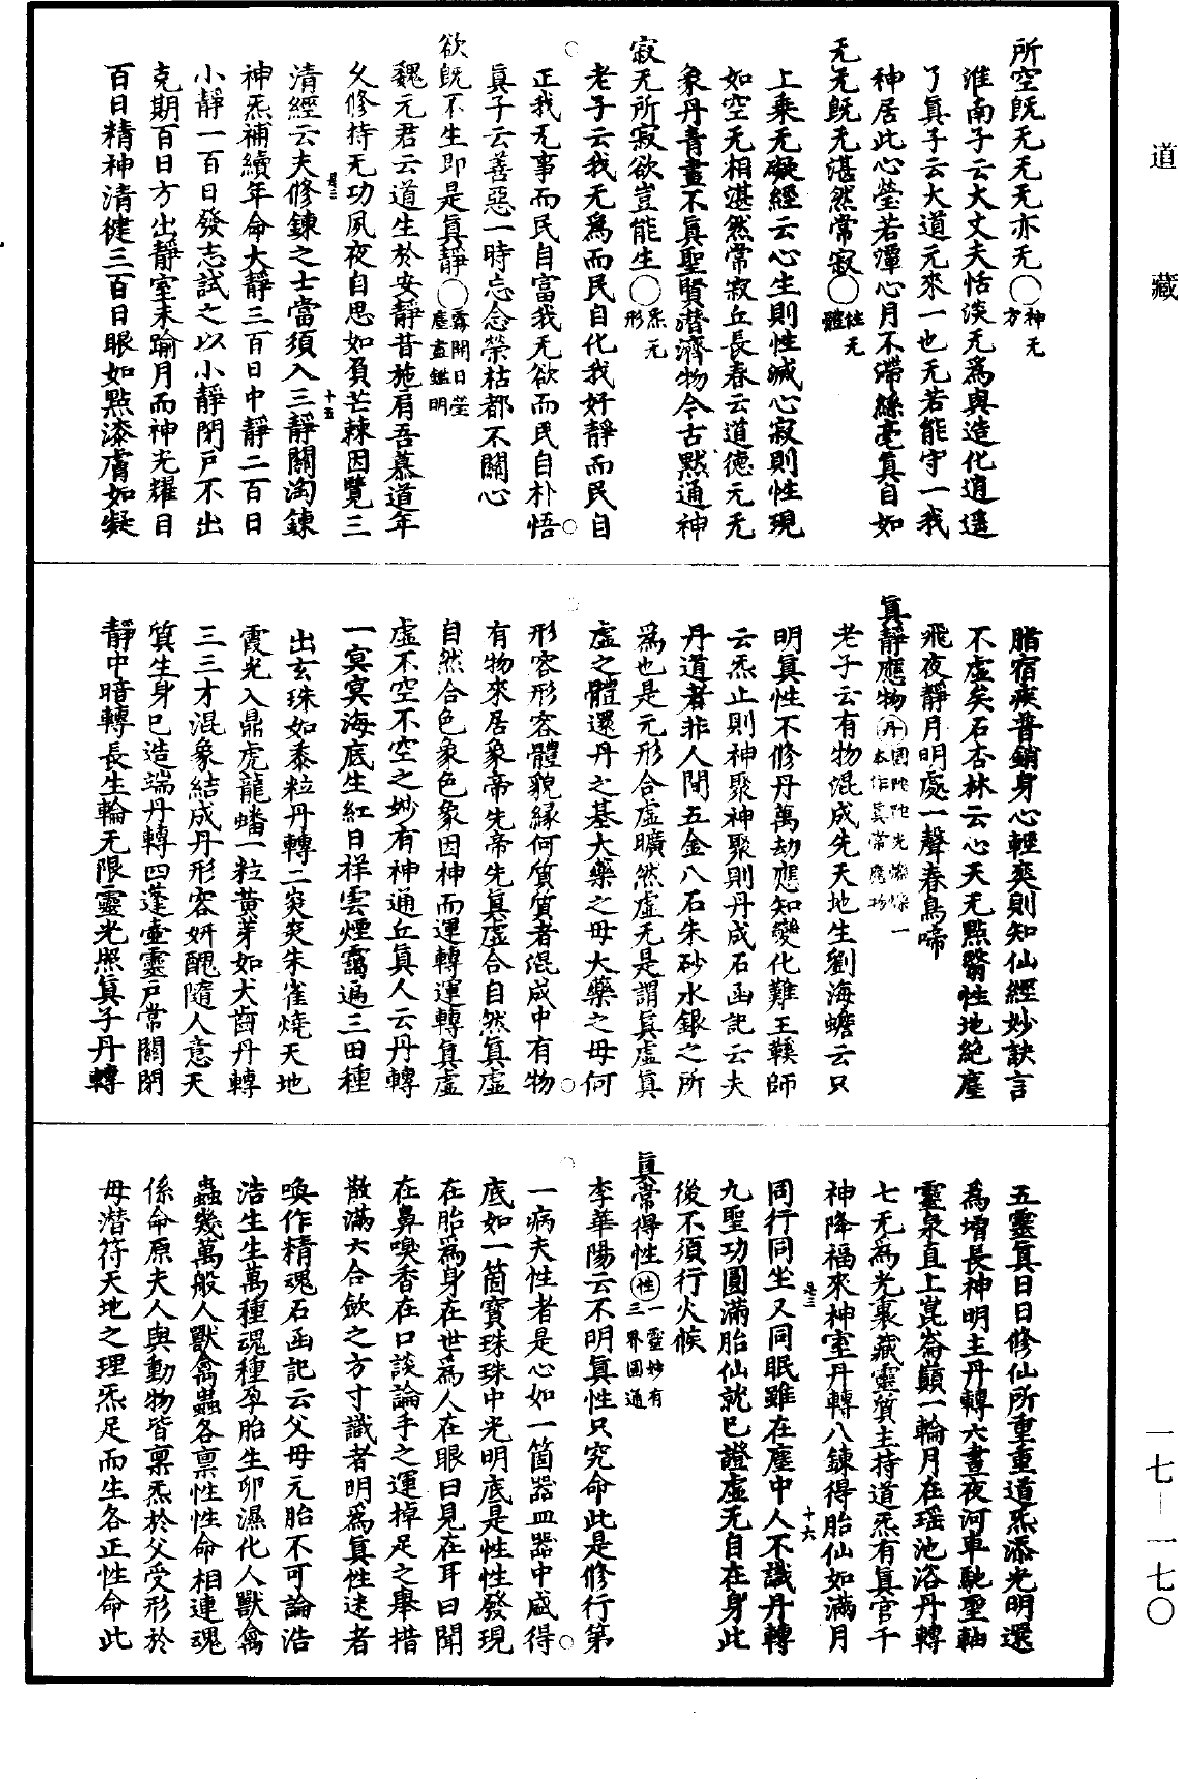 道藏
所空既无无无亦无〇神无方
淮南子云大丈夫恬淡无為與造化逍遥
了真子云大道元來一也无若能守一我
神居此心瑩若潭心月不滯絲毫真自如
无无既无湛然常寂〇性无體
上乘无礙經云心生則性滅心寂則性現
如空无相湛然常寂丘長春云道德元无
象丹青畫不真聖賢潜濟物今古默通神
寂无所寂欲豈能生〇炁无形
老子云我无為而民自化我好靜而民自
正我无事而民自富我无欲而民自朴悟
真子云善惡一時忘念榮枯都不關心
欲既不生即是真靜〇霧開日瑩塵盡鑑明
魏元君云道生於安靜昔施肩吾慕道年
父修持无功夙夜自思如負芒棘因覽三
清經云夫修鍊之士當須入三靜關淘鍊
神炁補續年命大靜三百日中靜二百日
小靜一百日發志試之以小靜閉戸不出
克期百日方出靜室未踰月而神光耀目
百日精神清健三百日眼如點漆膚如凝
十五
脂宿疾普銷身心輕爽則知仙經妙訣言
不虛矣石杏林云心天无點翳性地絶塵
飛夜靜月明處一聲春鳥啼
真靜應物丹圓陀陀光爍爍一本作真常應物
老子云有物混成先天地生劉海蟾云只
明真性不修丹萬劫應知變化難王鞵師
云炁止則神聚神聚則丹成石函記云夫
丹道者非人間五金八石朱砂水銀之所
為也是元形合虛曠然虛无是謂真虛真
虛之體還丹之基大藥之母大藥之母何
形容形容體貌緣何質質者混成中有物
有物來居象帝先帝先真虛合自然真虛
自然合色象色象因神而運轉運轉真虛
虛不空不空之妙有神通丘真人云丹轉
一㝠㝠海底生紅日祥雲煙靄遍三田種
出玄珠如黍粒丹轉二炎炎朱雀燒天地
霞光入鼎虎龍蟠一粒黃芽如犬齒丹轉
三三才混象結成丹形容妍醜隨人意天
箕生身已造端丹轉四蓬壷靈戸常關閉
靜中暗轉長生輪无限靈光照真子丹轉
五靈真日日修仙所重重道炁添光明還
為増長神明主丹轉六晝夜河車馳聖軸
靈泉直上崑崙巔一輪月在瑶池浴丹轉
七无為光裏藏靈質主持道炁有真官千
神降福來神室丹轉八鍊得胎仙如滿月
同行同坐又同眠雖在塵中人不識丹轉
九聖功圓滿胎仙就已證虛无自在身此
後不須行火候
十六
真常得性性一靈妙有三界圓通
李華陽云不明真性只究命此是修行第
一病夫性者是心如一箇器皿器中盛得
底如一箇寶珠珠中光明底是性性發現
在胎為身在世為人在眼曰見在耳曰聞
在鼻嗅香在口談論手之運掉足之舉措
散滿六合歛之方寸識者明為真性迷者
喚作精魂石函記云父母元胎不可論浩
浩生生萬種魂種孕胎生卵濕化人獸禽
蟲幾萬般人獸禽蟲各稟性性命相連魂
係命原夫人與動物皆稟炁於父受形於
母潜符天地之理炁足而生各正性命此
一七—一七〇